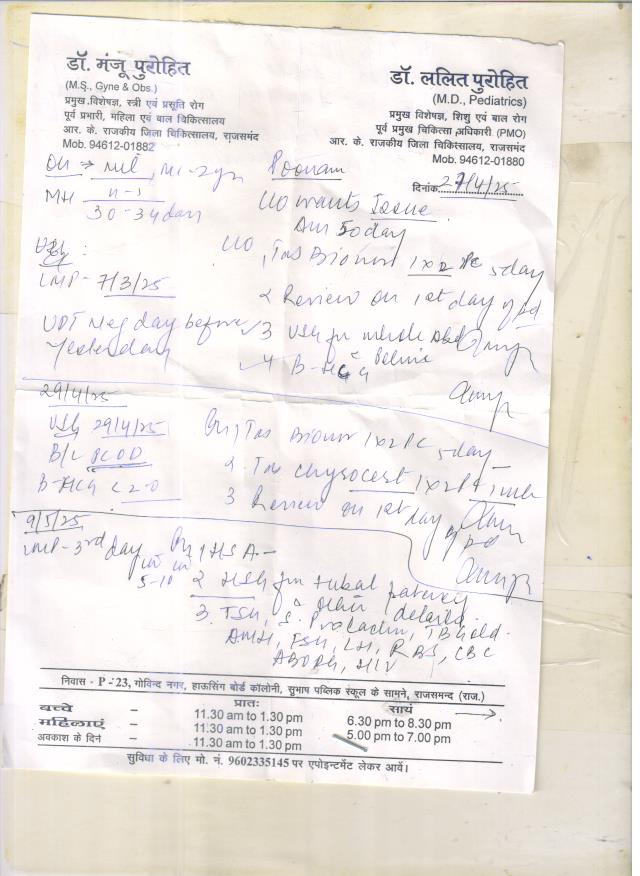 डॉ. मंजू पुरोहित
(M.S., Gyne & Obs.)
प्रमुख विशेषज्ञ, स्त्री एवं प्रसूति रोग
पूर्व प्रभारी, महिला एवं बाल चिकित्सालय
आर. के. राजकीय जिला चिकित्सालय, राजसमंद
Mob. 94612-01882
डॉ. ललित पुरोहित
(M.D., Pediatrics)
प्रमुख विशेषज्ञ, शिशु एवं बाल रोग
पूर्व प्रमुख चिकित्सा अधिकारी (PMO)
आर. के. राजकीय जिला चिकित्सालय, राजसमंद
Mob. 94612-01880
दिनांक 27/4/25
OH → Nil, Poonam
MH
30-34 day
wants Issue
50 day
LMP - 7/3/25
1x2 PC 5day
2 Review on 1st day of pd
UPT Neg day before
Yesterday
3 USG for whole Abd
4 B-HCG
29/4/25
USG 29/4/25
B/L PCOD
B-HCG < 2.0
1x2 PC 5day
3 Review on 1st day of pd
9/5/25
LMP - 3rd day
1 HSA -
5-10
2 HSG for tubal patency
3. TSH, S. Prolactin, TB Gold
AMH, FSH, LH, RBS, CBC
ABORh, HIV
निवास - P - 23, गोविन्द नगर, हाऊसिंग बोर्ड कॉलोनी, सुभाष पब्लिक स्कूल के सामने, राजसमन्द (राज.)
प्रातः सायं
बच्चे - 11.30 am to 1.30 pm 6.30 pm to 8.30 pm
महिलाएं - 11.30 am to 1.30 pm 5.00 pm to 7.00 pm
अवकाश के दिन - 11.30 am to 1.30 pm
सुविधा के लिए मो. नं. 9602335145 पर एपोइन्टमेंट लेकर आवें।